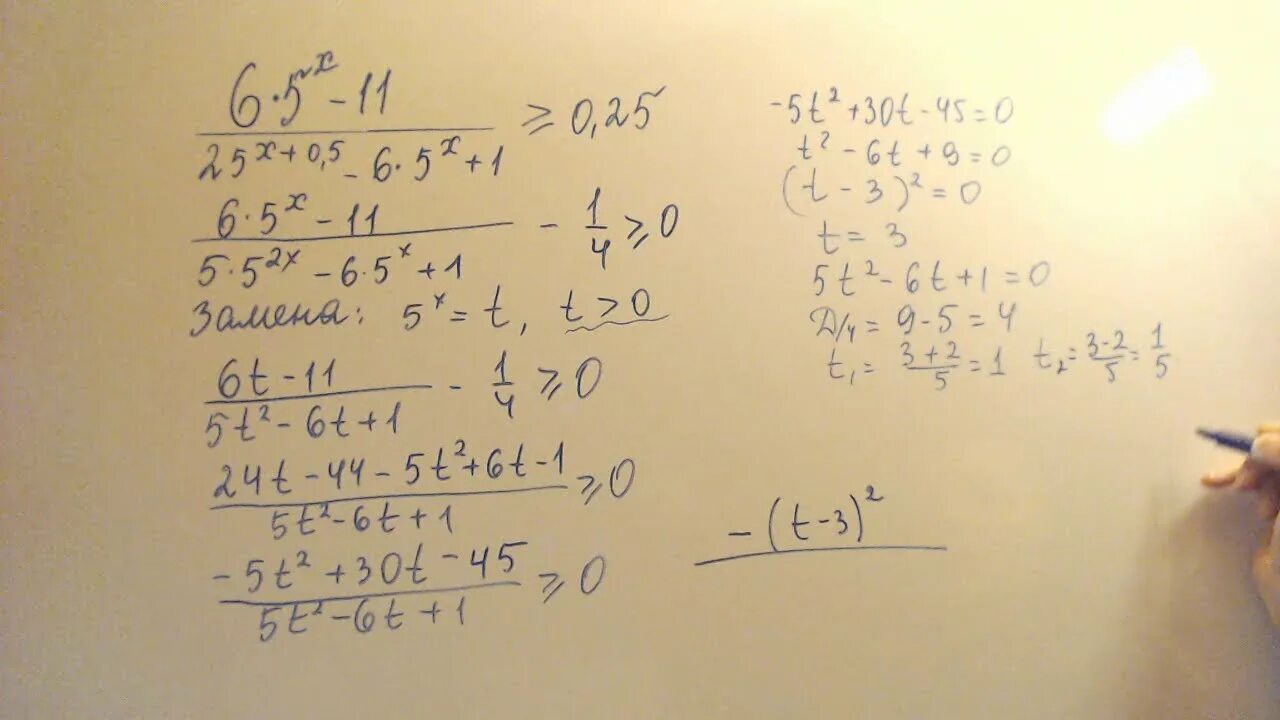 6·5^x - 11
25^(x+0,5) - 6·5^x + 1
≥ 0,25
6·5^x - 11
5·5^(2x) - 6·5^x + 1
- 1/4 ≥ 0
Замена: 5^x = t, t > 0
6t - 11
5t² - 6t + 1
- 1/4 ≥ 0
24t - 44 - 5t² + 6t - 1
5t² - 6t + 1
≥ 0
-5t² + 30t - 45
5t² - 6t + 1
≥ 0
-5t² + 30t - 45 = 0
t² - 6t + 9 = 0
(t - 3)² = 0
t = 3
5t² - 6t + 1 = 0
Д/4 = 9 - 5 = 4
t₁ = (3+2)/5 = 1 t₂ = (3-2)/5 = 1/5
-(t - 3)²